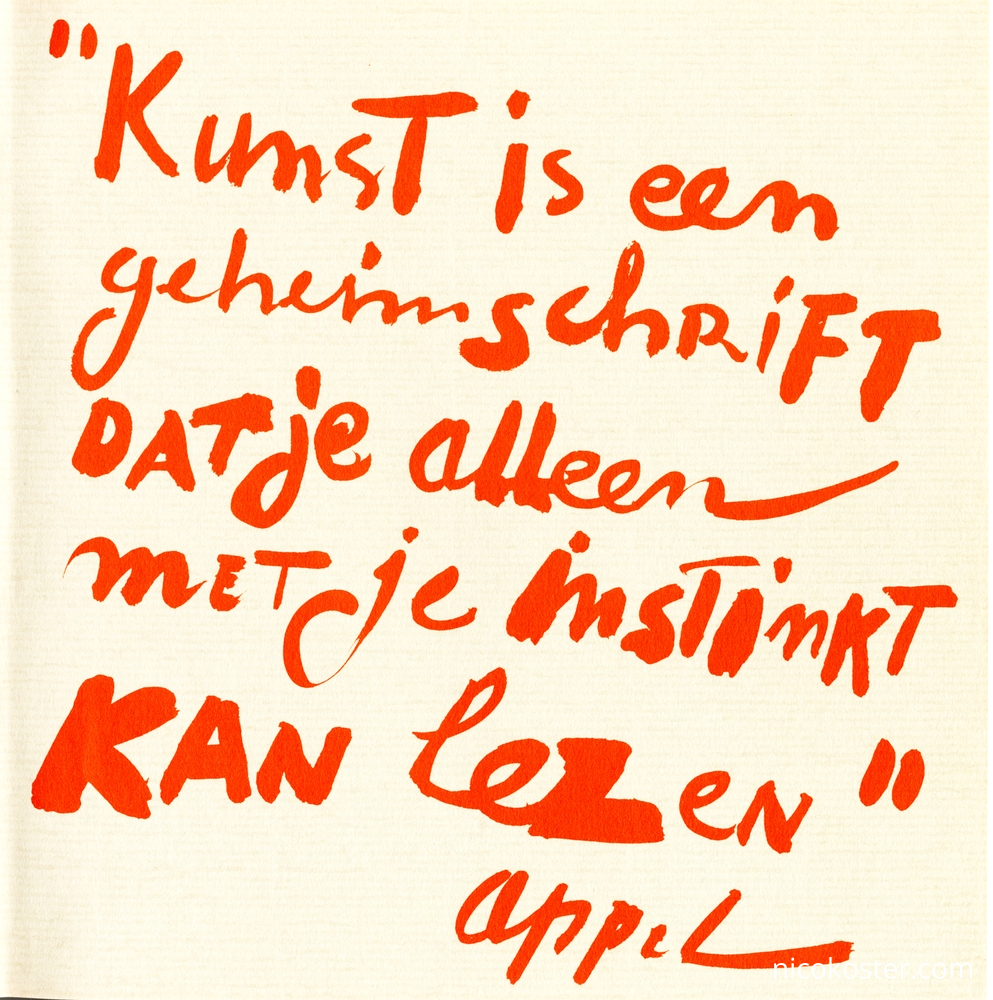 "Kunst is een
geheimschrift
DAT je alleen
met je instinkt
KAN lezen"
appel
nicokoster.com